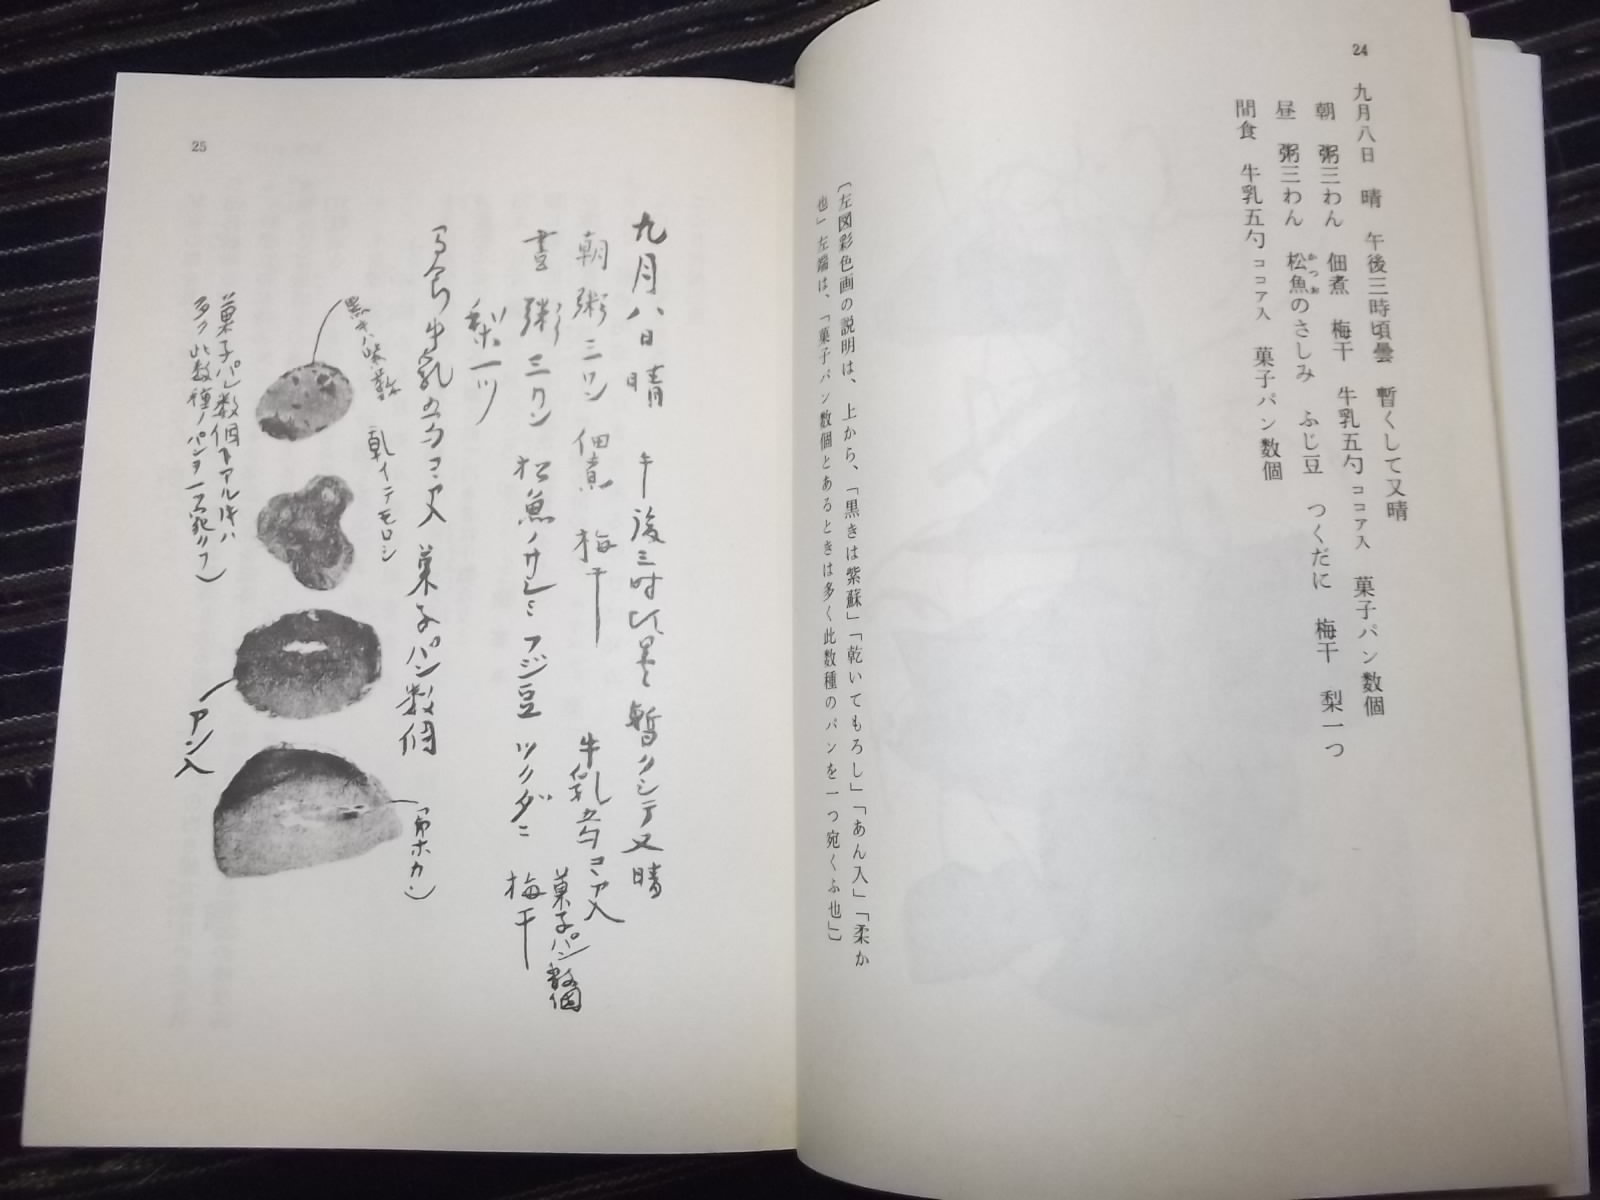 24
九月八日　晴　午後三時頃曇　暫くして又晴
朝　粥三わん　佃煮　梅干　牛乳五勺ココア入　菓子パン数個
昼　粥三わん　松魚のさしみ　ふじ豆　つくだに　梅干　梨一つ
かつお
間食　牛乳五勺ココア入　菓子パン数個
〔左図彩色画の説明は、上から、「黒きは紫蘇」「乾いてもろし」「あん入」「柔か
也」左端は、「菓子パン数個とあるときは多く此数種のパンを一つ宛くふ也」〕
25
九月八日　晴　午後三時頃曇　暫クシテ又晴
朝　粥三ワン　佃煮　梅干　牛乳五勺ココア入
菓子パン数個
昼　粥三ワン　松魚ノサシミ　フジ豆　ツクダニ　梅干
梨一ツ
間食　牛乳五勺ココア入　菓子パン数個
黒キハ紫蘇
乾イテモロシ
アン入
柔カ
菓子パン数個トアルトキハ
多ク此数種ノパンヲ一ツ宛クフ